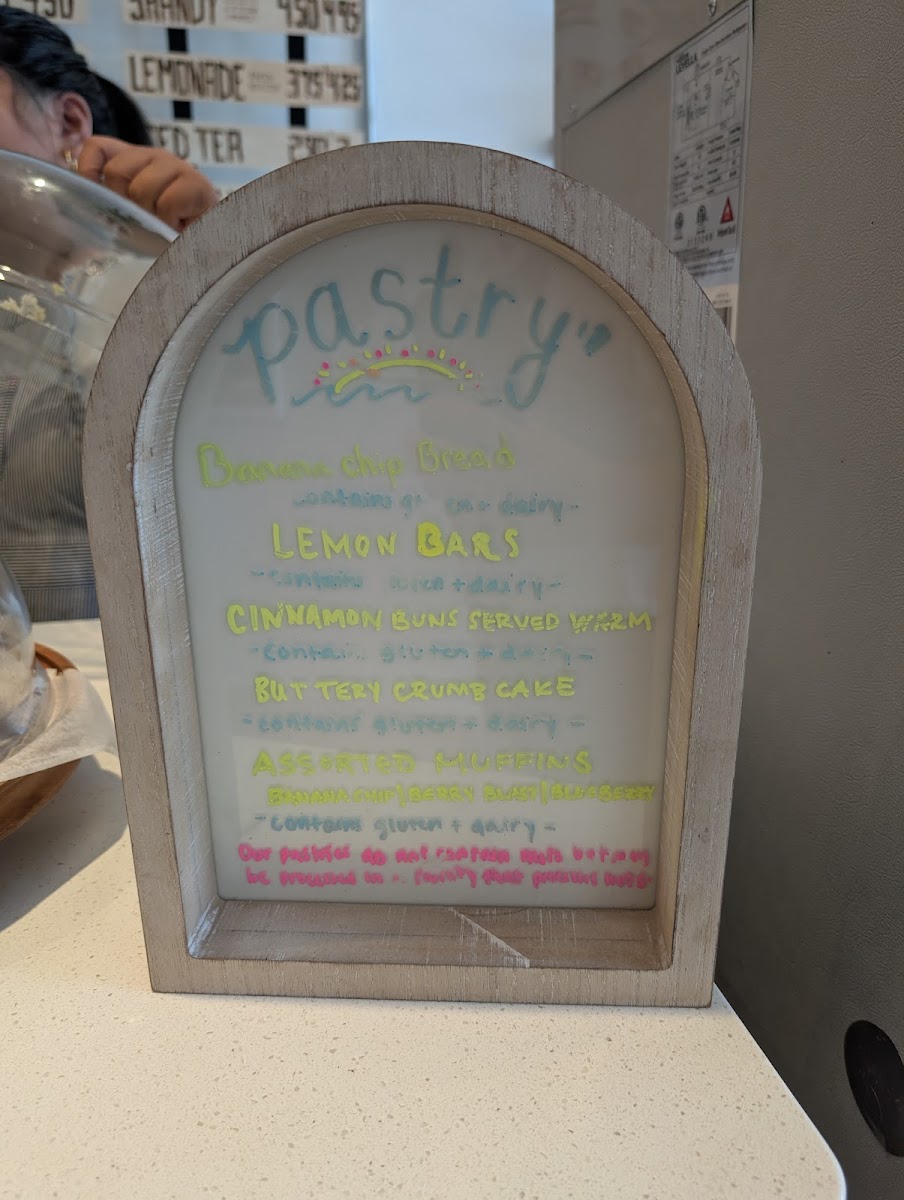 SHANDY 450 495
LEMONADE 375 425
pastry
Banana chip Bread
contains dairy-
LEMON BARS
-contains + dairy-
CINNAMON BUNS SERVED WARM
-contain gluten + dairy-
BUTTERY CRUMB CAKE
-contains gluten + dairy-
ASSORTED MUFFINS
BANANA CHIP/BERRY BLAST/BLUEBERRY
-contains gluten + dairy-
Our pastries do not contain nuts but may
be processed in a facility that process nuts.